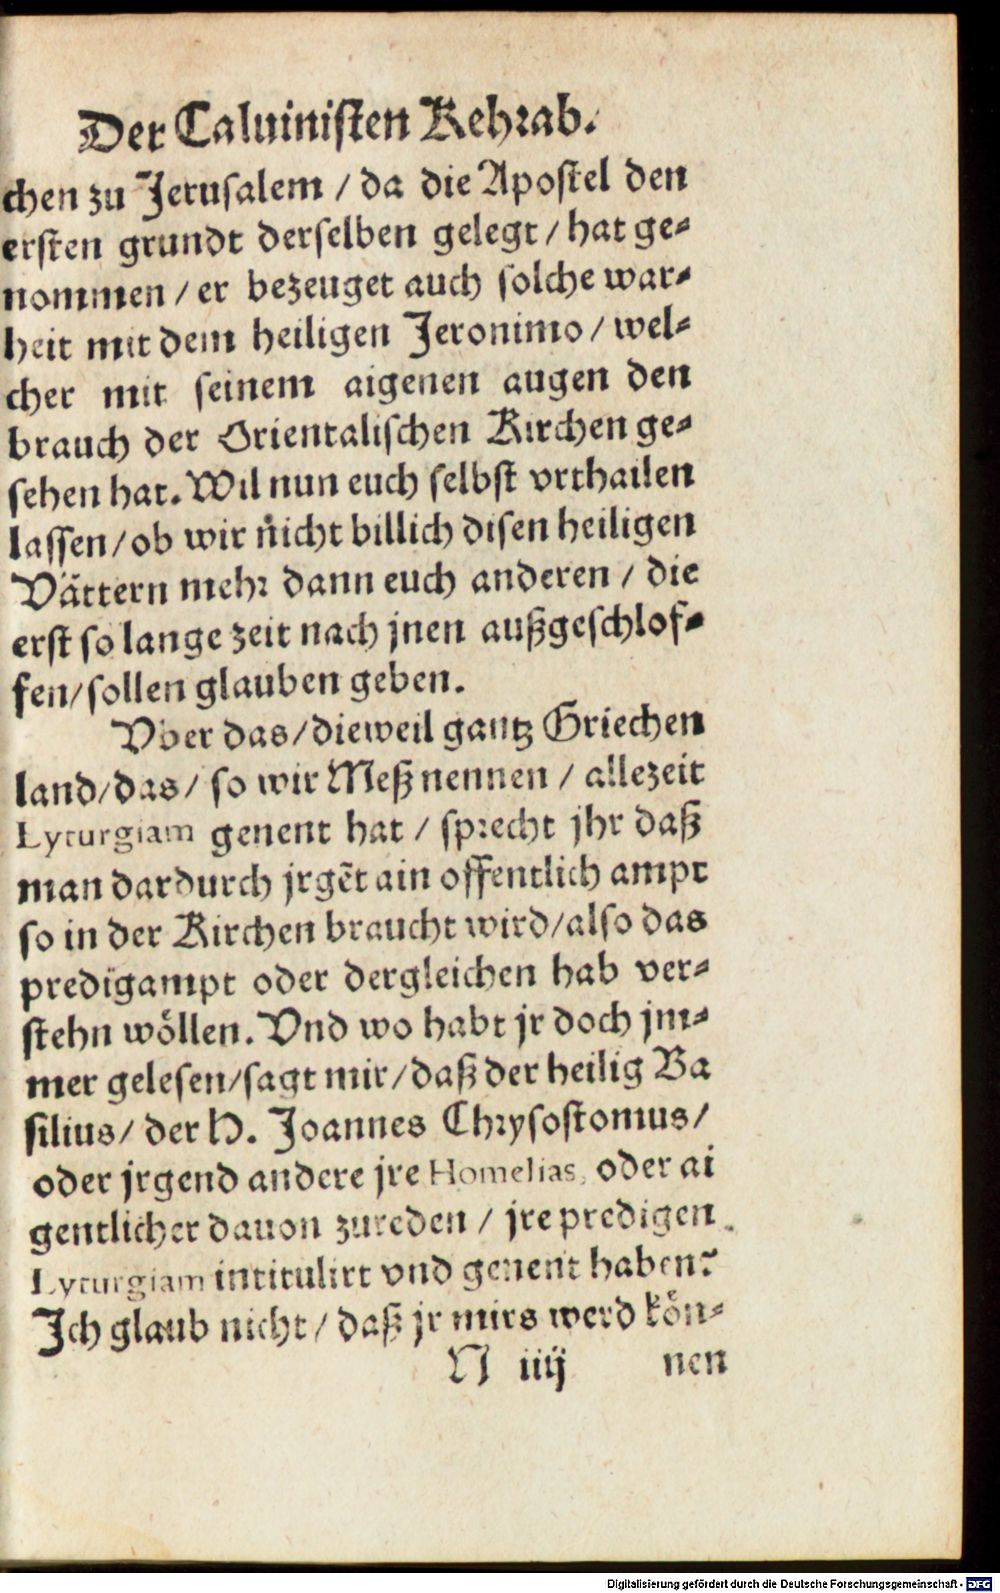 Der Caluinisten Kehrab.
chen zu Jerusalem / da die Apostel den
ersten grundt derselben gelegt / hat ge-
nommen / er bezeuget auch solche war-
heit mit dem heiligen Jeronimo / wel-
cher mit seinem aigenen augen den
brauch der Orientalischen Kirchen ge-
sehen hat. Wil nun euch selbst vrthailen
lassen / ob wir nicht billich disen heiligen
Vättern mehr dann euch anderen / die
erst so lange zeit nach jnen außgeschlof-
fen / sollen glauben geben.
Vber das / dieweil gantz Griechen
land / das / so wir Meß nennen / allezeit
Lyturgiam genent hat / sprecht jhr daß
man dardurch jrgẽt ain offentlich ampt
so in der Kirchen braucht wird / also das
predigampt oder dergleichen hab ver-
stehn wöllen. Vnd wo habt jr doch jm-
mer gelesen / sagt mir / daß der heilig Ba
silius / der H. Joannes Chrysostomus /
oder jrgend andere jre Homelias, oder ai
gentlicher dauon zureden / jre predigen
Lyturgiam intitulirt vnd genent haben?
Ich glaub nicht / daß jr mirs werd kön-
N iiij nen
Digitalisierung gefördert durch die Deutsche Forschungsgemeinschaft - DFG